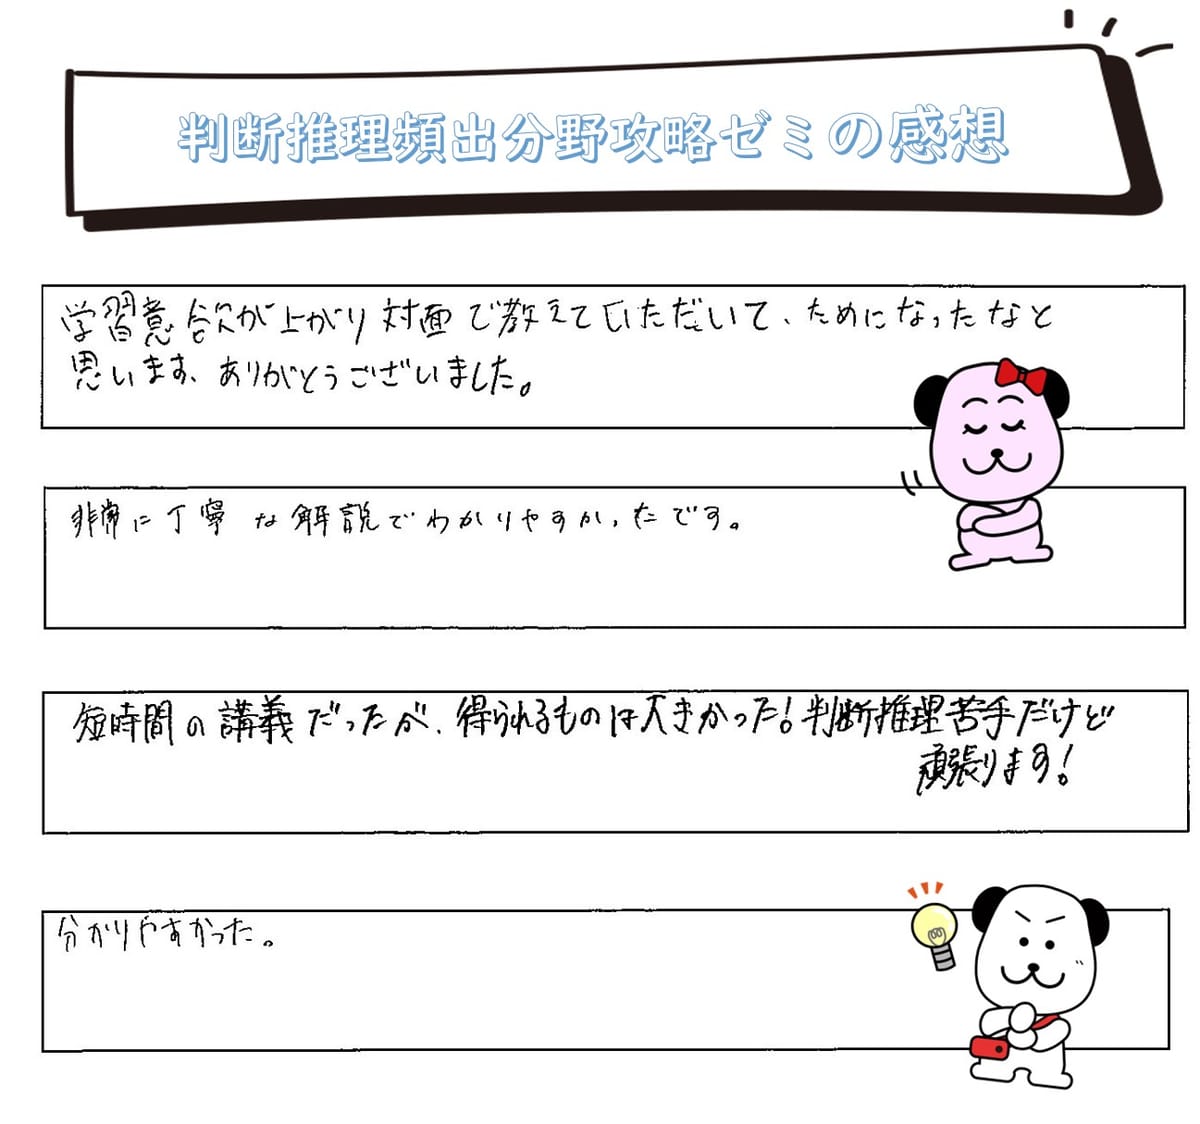 判断推理頻出分野攻略ゼミの感想
学習意欲が上がり対面で教えていただいて、ためになったなと
思います、ありがとうございました。
非常に丁寧な解説でわかりやすかったです。
短時間の講義だったが、得られるものは大きかった！判断推理苦手だけど
頑張ります！
分かりやすかった。